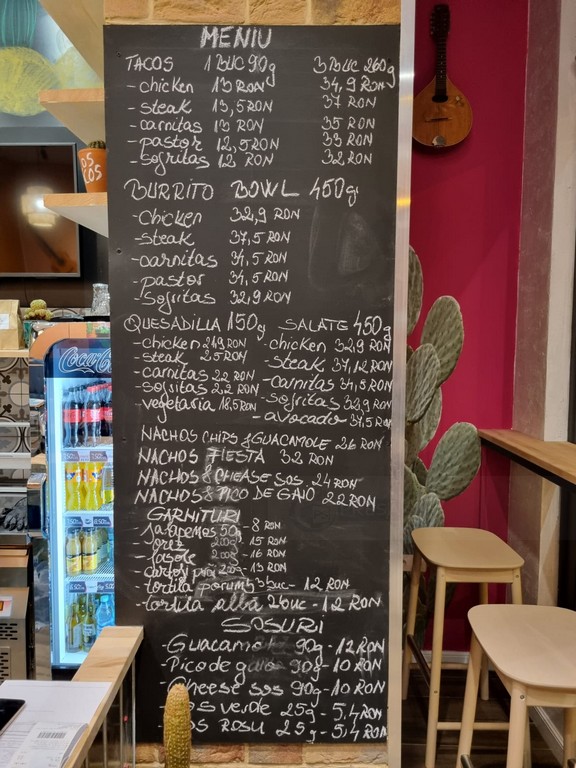 MENIU
TACOS 1 BUC 90g 3 BUC 260g
- chicken 13 RON 34,9 RON
- steak 13,5 RON 37 RON
- carnitas 13 RON 35 RON
- pastor 12,5 RON 33 RON
- sofritas 12 RON 32 RON
BURRITO BOWL 450g
- chicken 32,9 RON
- steak 37,5 RON
- carnitas 34,5 RON
- pastor 34,5 RON
- Sofritas 32,9 RON
QUESADILLA 150g SALATE 450g
- chicken RON - chicken 32,9 RON
- steak 25 RON - steak RON
- carnitas 22 RON - carnitas 34,5 RON
- sofritas 22 RON - sofritas 32,9 RON
- vegetaria 18,5 RON - avocado 34,5 RON
NACHOS CHIPS & GUACAMOLE 26 RON
NACHOS FIESTA 32 RON
NACHOS & CHEASE SOS 24 RON
NACHOS & PICO DE GAIO 22 RON
GARNITURI
- Jalapenos 50g - 8 RON
- orez - 15 RON
- fasole - 16 RON
- cartofi - 13 RON
- tortilla porumb 3 buc - 12 RON
- tortita albă 2 buc - 12 RON
SOSURI
- Guacamole 90g - 12 RON
- Pico de gaio 90g - 10 RON
- Cheese sos 90g - 10 RON
- sos verde 25g - 5,4 RON
- SOS ROSU 25g - 5,4 RON
Coca-Co